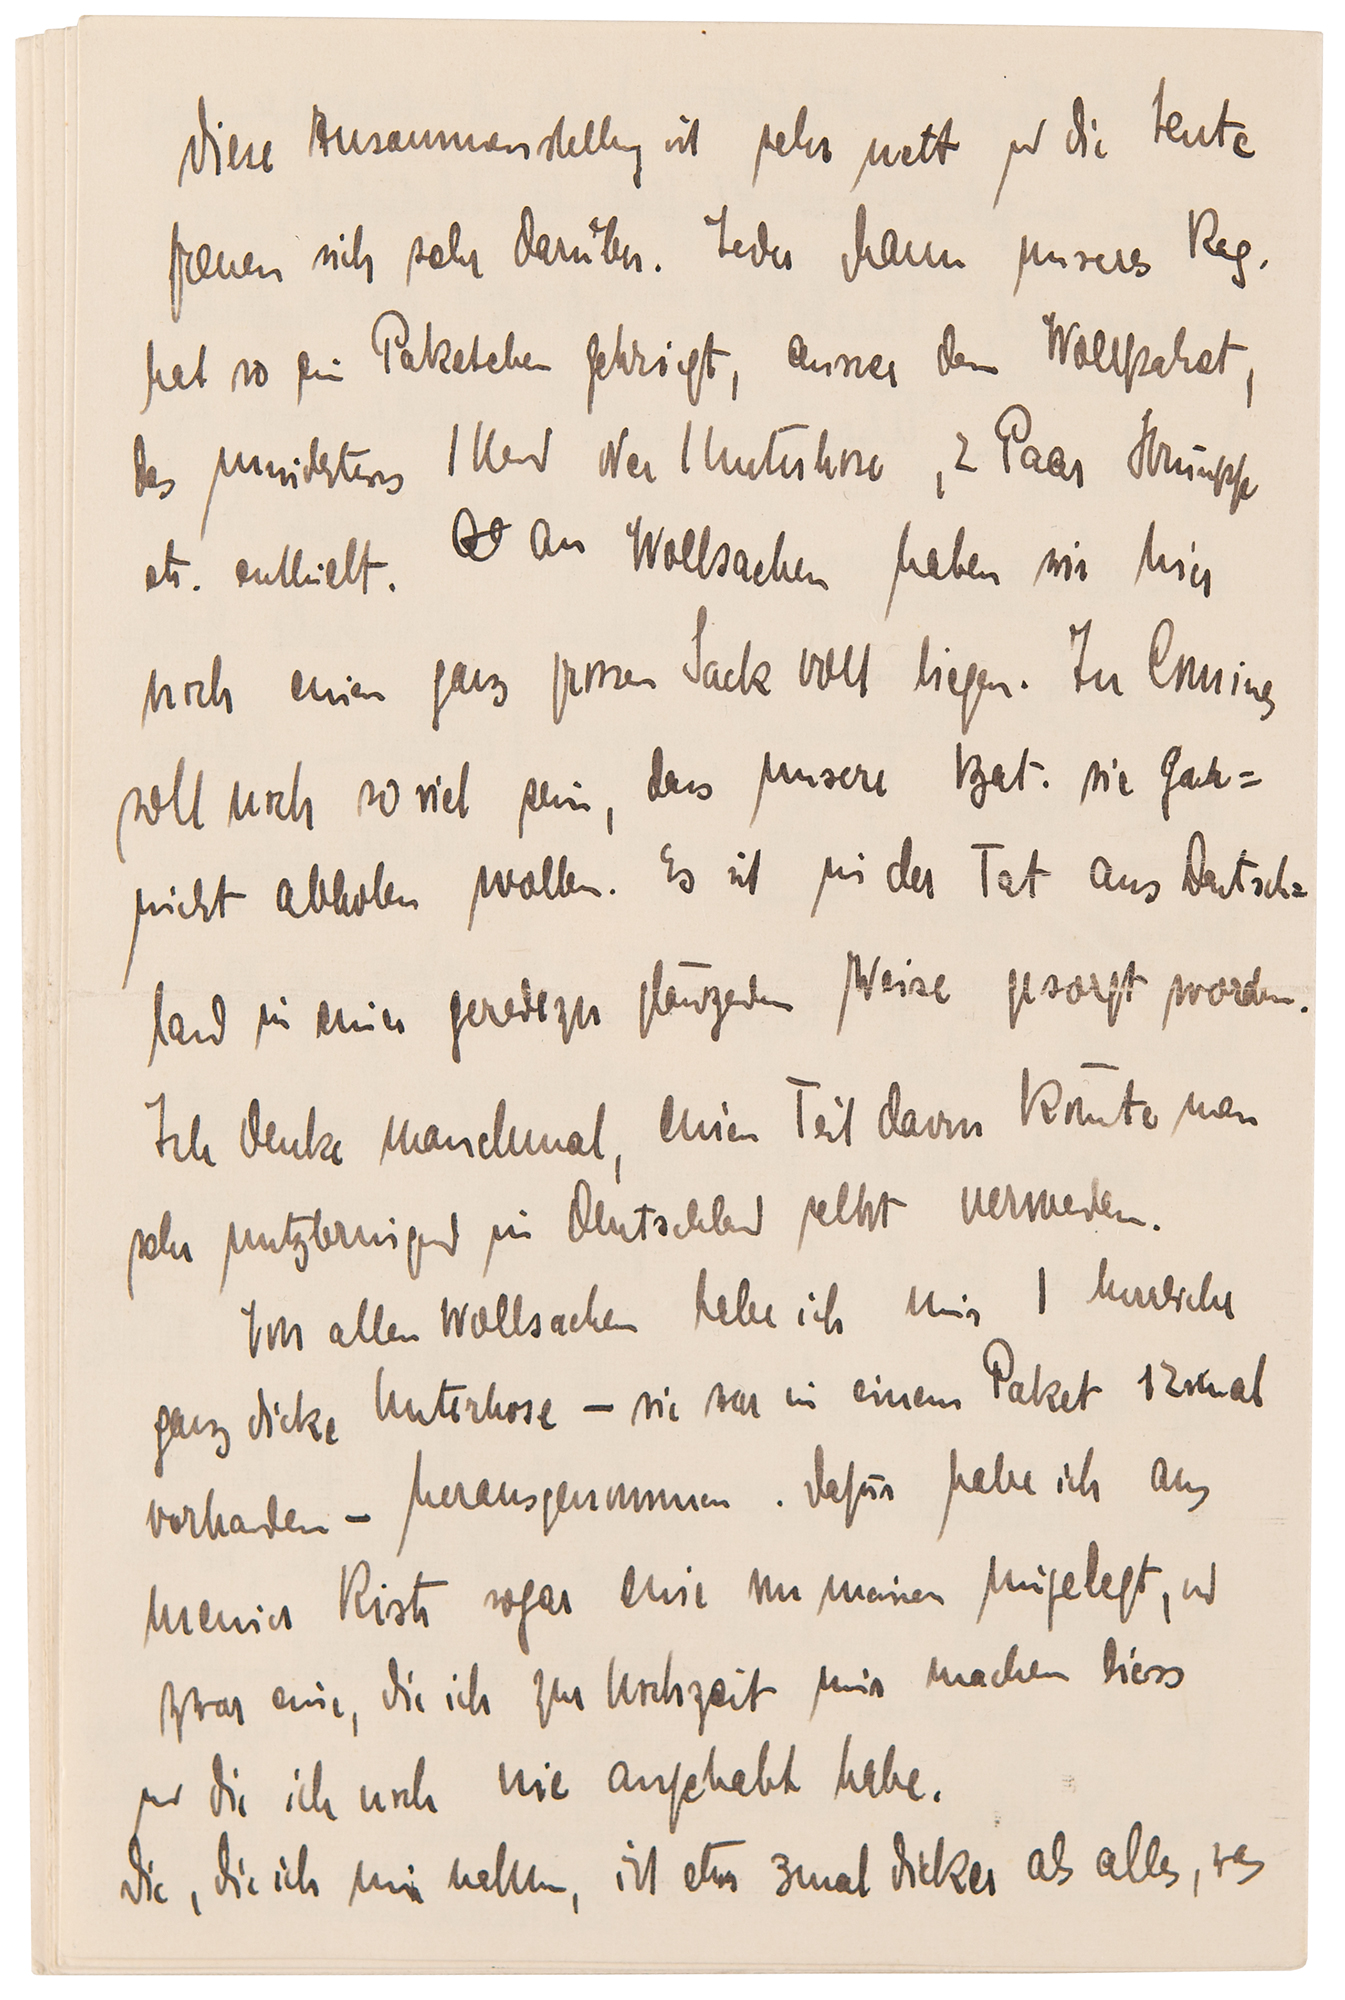 Diese Zusammenstellung ist sehr nett u. die Leute
freuen sich sehr darüber. Jeder Mann unseres Reg.
hat so ein Paketchen gekriegt, ausser dem Wollpaket,
das mindestens 1 Hemd oder 1 Unterhose, 2 Paar Strümpfe
etc. enthielt. An Wollsachen haben wir hier
noch einen ganz grossen Sack voll liegen. In Comines
soll noch so viel sein, dass unsere Bat. sie gar=
nicht abholen wollen. Es ist in der Tat aus Deutsch=
land in einer geradezu glänzenden Weise gesorgt worden.
Ich denke manchmal, einen Teil davon könnte man
sehr nutzbringend in Deutschland selbst verwenden.
Von allen Wollsachen habe ich mir 1 herrliche
ganz dicke Unterhose – sie war in einem Paket 12mal
vorhanden – herausgenommen. Dafür habe ich aus
meiner Kiste sogar eine von meinen zugelegt, und
zwar eine, die ich zur Hochzeit mir machen liess
und die ich noch nie angehabt habe.
Die, die ich mir nahm, ist etwa 3mal dicker als alles, was